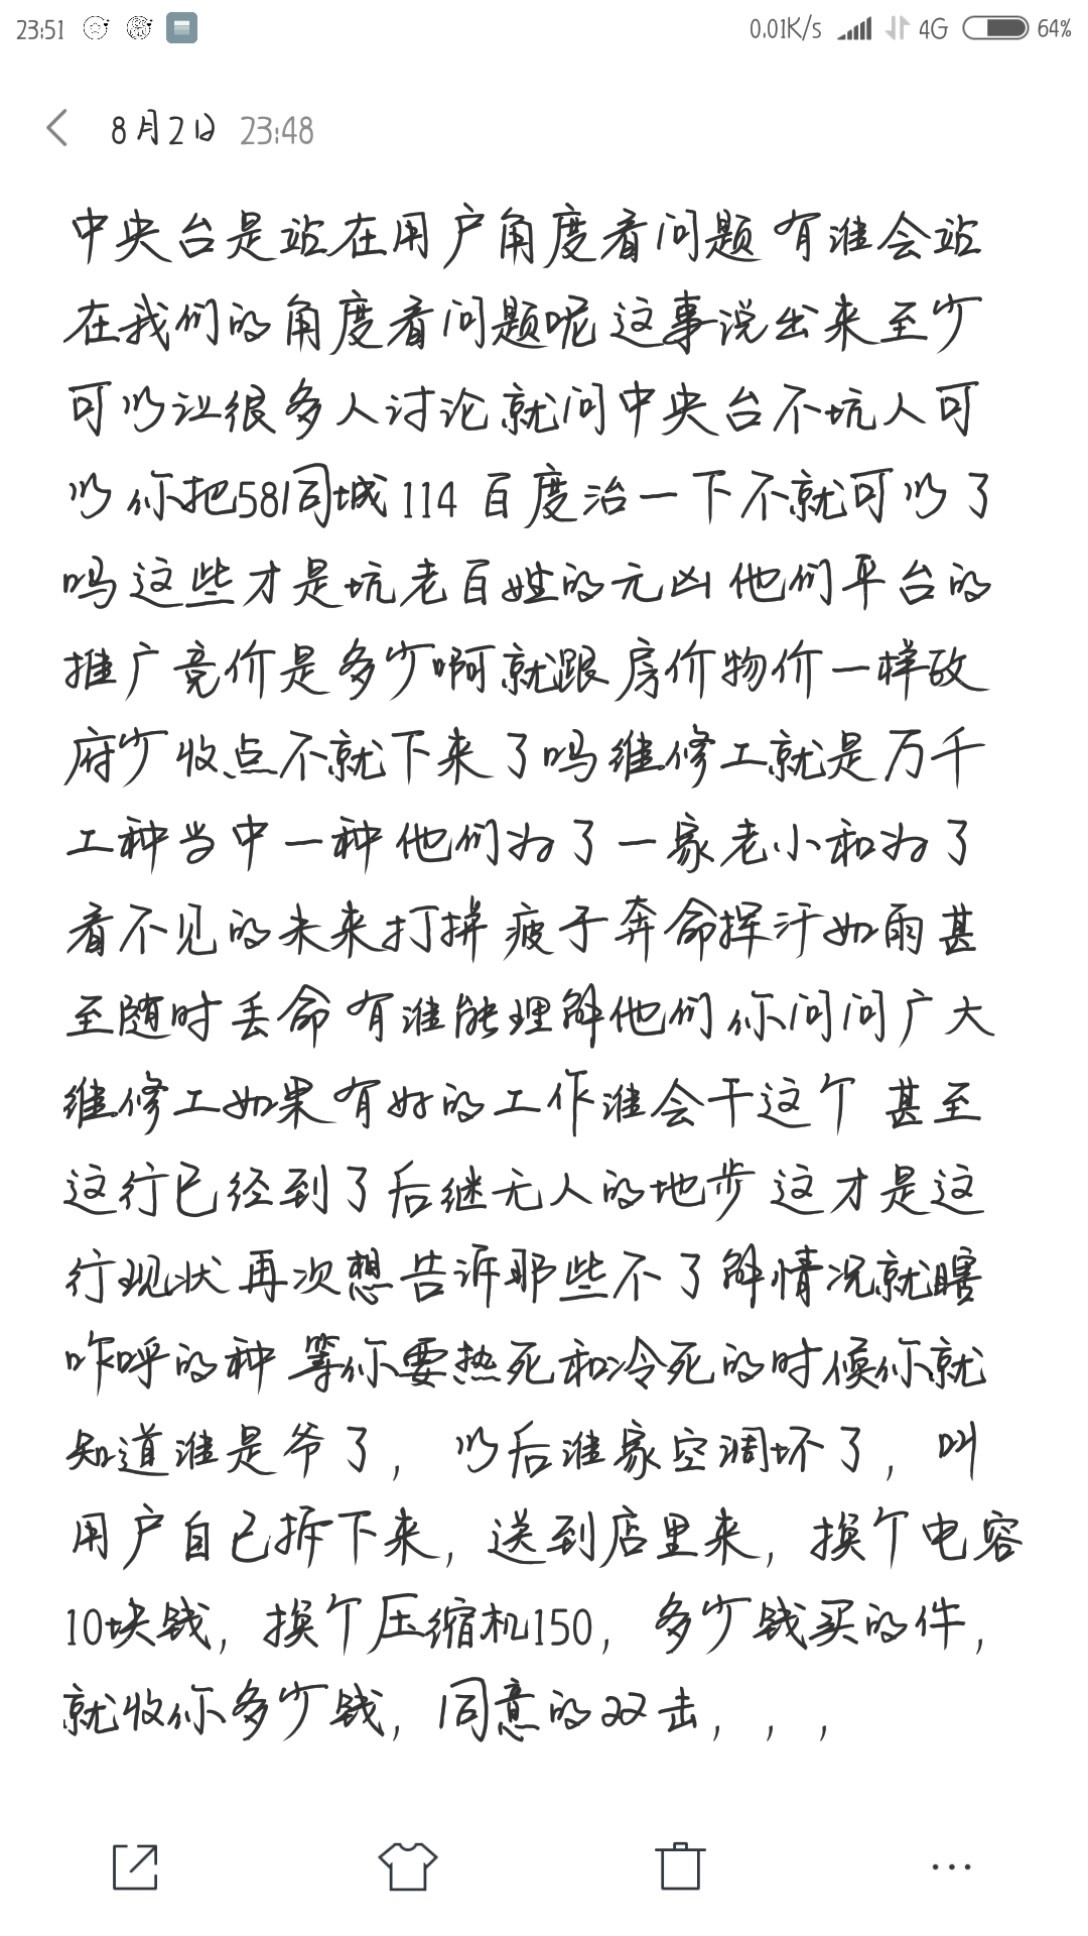 23:51 0.01K/s 4G 64%
8月2日 23:48
中央台是站在用户角度看问题 有谁会站
在我们的角度看问题呢 这事说出来至少
可以让很多人讨论就问中央台不坑人可
以 你把58同城 114 百度治一下不就可以了
吗 这些才是坑老百姓的元凶 他们平台的
推广竞价是多少啊就跟房价物价一样政
府少收点不就下来了吗 维修工就是万千
工种当中一种 他们为了一家老小和为了
看不见的未来打拼 疲于奔命挥汗如雨甚
至随时丢命 有谁能理解他们 你问问广大
维修工如果有好的工作谁会干这个 甚至
这行已经到了后继无人的地步 这才是这
行现状 再次想告诉那些不了解情况就瞎
咋呼的种 等你要热死和冷死的时候你就
知道谁是爷了， 以后谁家空调坏了，叫
用户自已拆下来，送到店里来，换个电容
10块钱，换个压缩机150，多少钱买的件，
就收你多少钱，同意的双击，，，